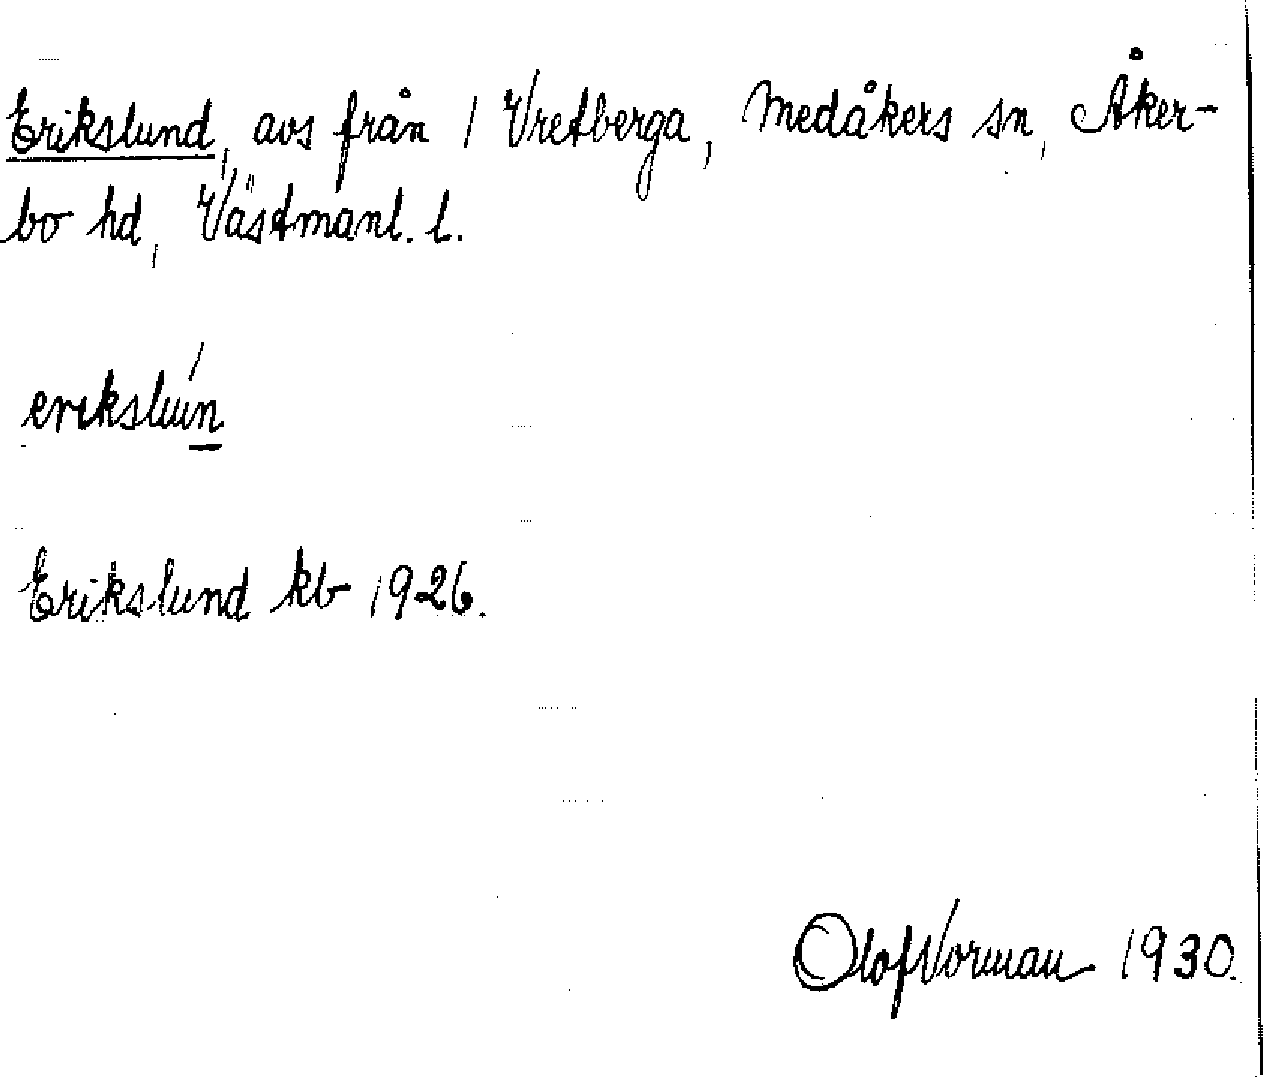 Erikslund, avs från 1 Vretberga, Medåkers sn, Åker-
bo hd, Västmanl. l.
erikslún
Erikslund kb 1926.
Olof Vorman 1930.